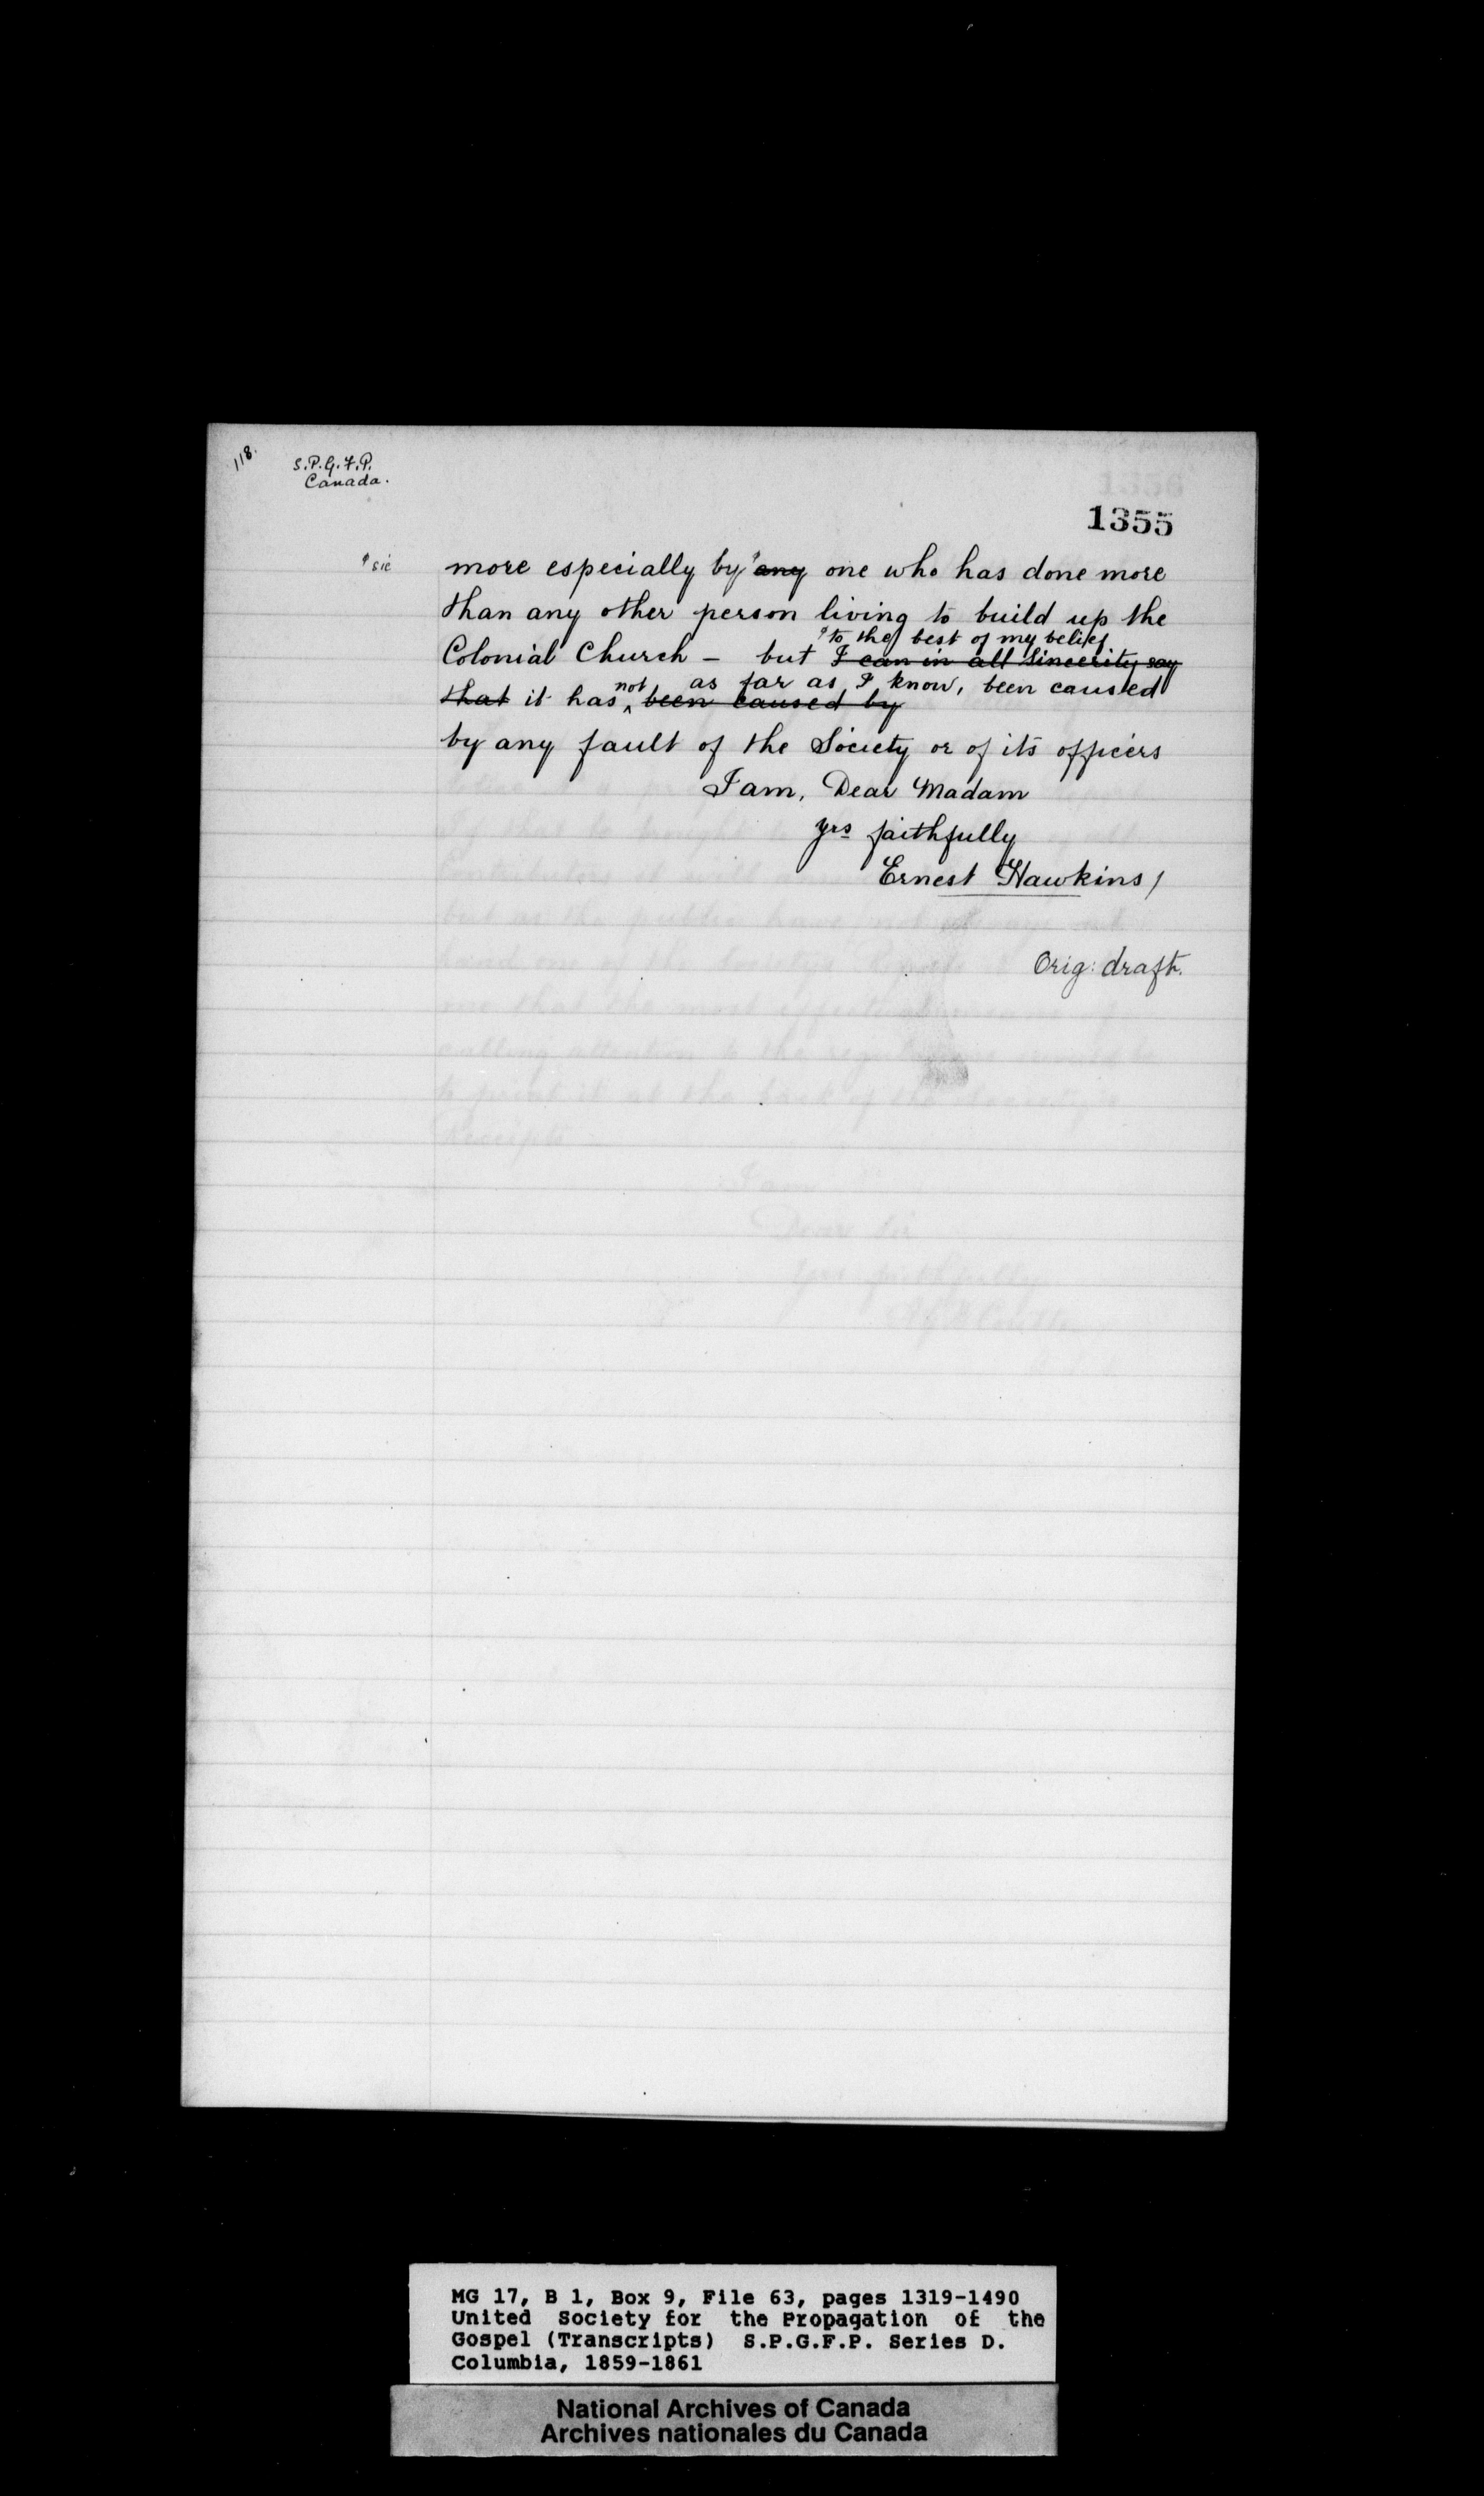 118.
S.P.G.F.P.
Canada.
1355
° sic
more especially by ° any one who has done more
than any other person living to build up the
° to the best of my belief
Colonial Church – but I can in all sincerity say
not as far as I know, been caused
that it has ^ been caused by
by any fault of the Society or of its officers
I am, Dear Madam
yrs faithfully
Ernest Hawkins /
Orig: draft.
MG 17, B 1, Box 9, File 63, pages 1319-1490
United Society for the Propagation of the
Gospel (Transcripts) S.P.G.F.P. Series D.
Columbia, 1859-1861
National Archives of Canada
Archives nationales du Canada